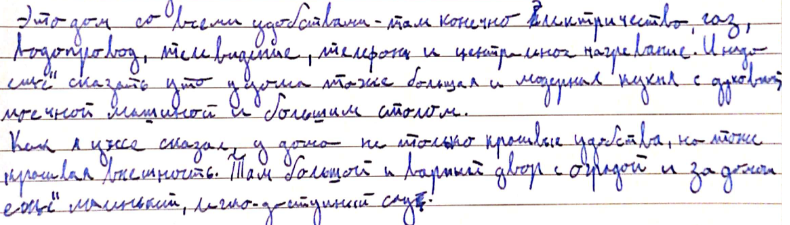 Это дом со всеми удобствами - там конечно электричество, газ,
водопровод, телевидение, телефон и центральное нагревание. И надо
ещё сказать что у дома тоже большая и модерная кухня с духовкой,
моечной машиной и большим столом.
Как я уже сказал, у дома не только красивые удобства, но тоже
красивая внешность. Там большой и двор с оградой и за домом
ещё маленький, сад.